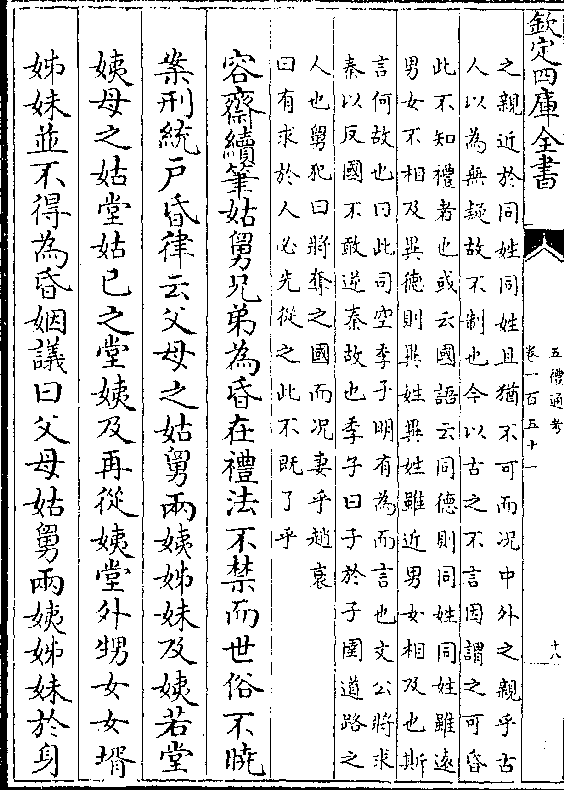 欽定四庫全書
五禮通考
卷一百五十一
十八
之親近於同姓同姓且猶不可而况中外之親乎古
人以為無疑故不制也今以古之不言因謂之可昏
此不知禮者也或云國語云同德則同姓同姓雖逺
男女不相及異德則異姓異姓雖近男女相及也斯
言何故也曰此司空季子明有為而言也文公將求
秦以反國不敢逆秦故也季子曰子於子圉道路之
人也舅犯曰將奪之國而况妻乎趙衰
曰有求於人必先從之此不既了乎
容齋續筆姑舅兄弟為昏在禮法不禁而世俗不曉
案刑統戸昏律云父母之姑舅兩姨姊妹及姨若堂
姨母之姑堂姑已之堂姨及再從姨堂外甥女女壻
姊妹並不得為昏姻議曰父母姑舅兩姨姊妹於身